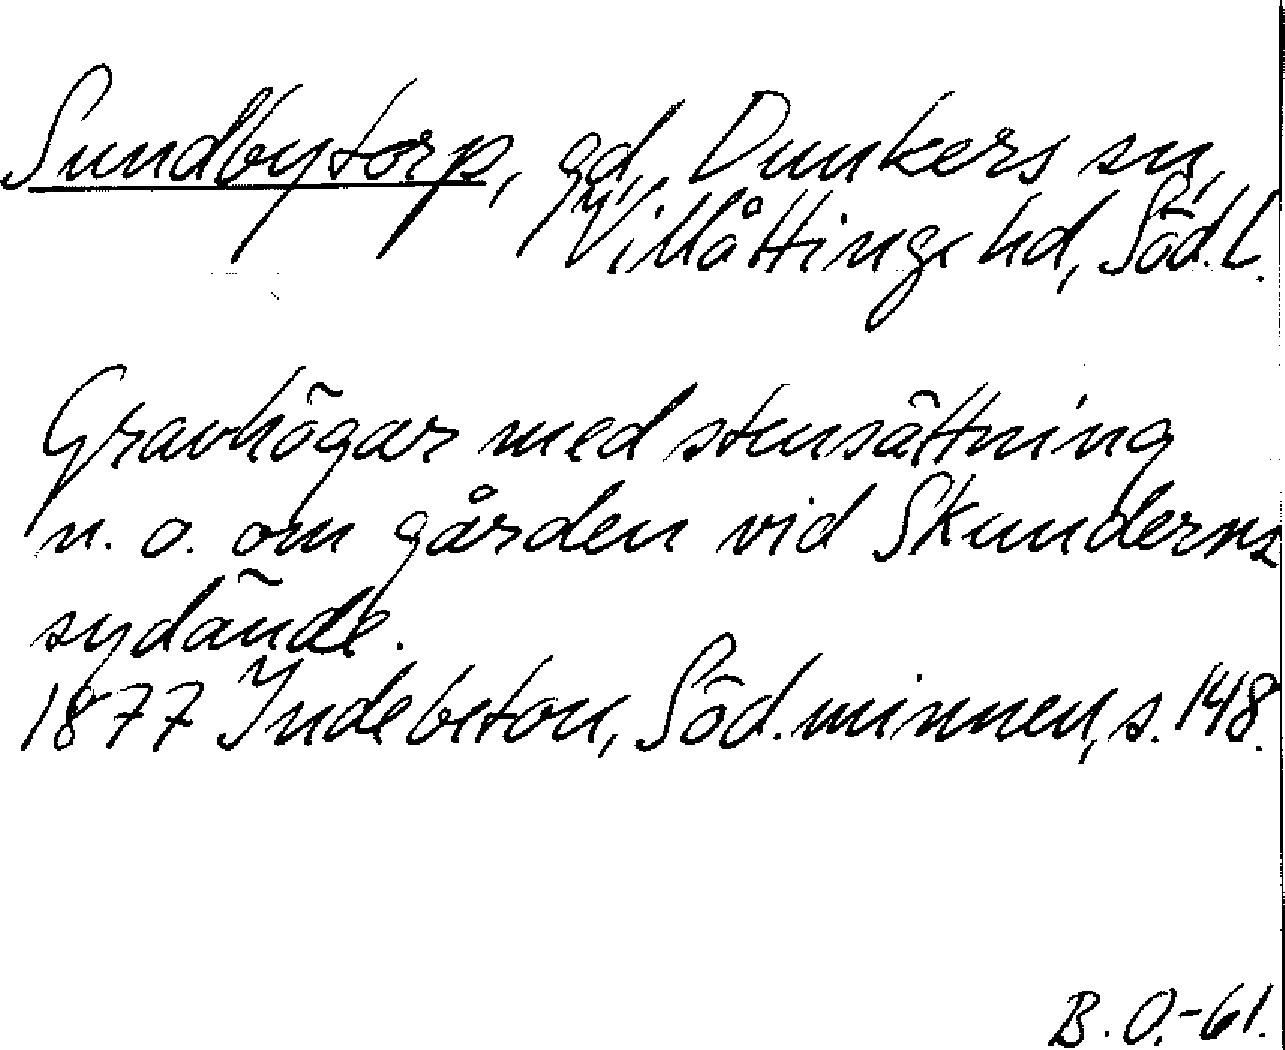 Sundbytorp, gd, Dunkers sn,
Villåttinge hd, Söd.l.
Gravhögar med stensättning
n. o. om gården vid Skunderns
sydände.
1877 Indebetou, Söd.minnen, s. 148.
B. O.-61.